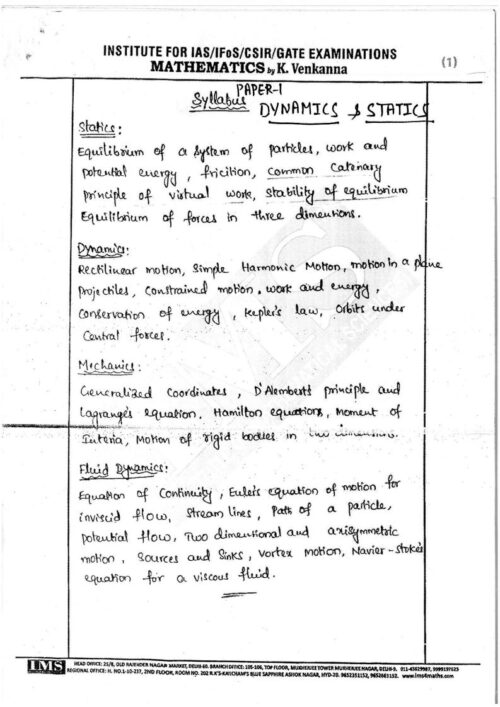 INSTITUTE FOR IAS/IFoS/CSIR/GATE EXAMINATIONS
MATHEMATICS by K. Venkanna
(1)
PAPER-I
Syllabus DYNAMICS & STATICS
Statics:
Equilibrium of a system of particles, work and
potential energy, friction, common catenary
principle of virtual work, stability of equilibrium
Equilibrium of forces in three dimentions.
Dynamics:
Rectilinear motion, Simple Harmonic Motion, motion in a plane
Projectiles, constrained motion, work and energy,
Conservation of energy, Kepler's law, Orbits under
Central forces.
Mechanics:
Generalized coordinates, D'Alembert's principle and
Lagrange's equation. Hamilton equations, Moment of
Interia, Motion of rigid bodies in two dimensions.
Fluid Dynamics:
Equation of Continuity, Euler's equation of motion for
inviscid flow, Stream lines, Path of a particle,
potential flow, Two dimentional and axisymmetric
motion, Sources and Sinks, Vortex Motion, Navier-Stokes
equation for a viscous fluid.
IMS
HEAD OFFICE: 25/8, OLD RAJENDER NAGAR MARKET, DELHI-60. BRANCH OFFICE: 105-106, TOP FLOOR, MUKHERJEE TOWER MUKHERJEE NAGAR, DELHI-9. 011-45629987, 9999197625
REGIONAL OFFICE: H. NO. 1-10-237, 2ND FLOOR, ROOM NO. 202 R.K'S-KANCHAM'S BLUE SAPPHIRE ASHOK NAGAR, HYD-20. 9652351152, 9652661152. www.ims4maths.com